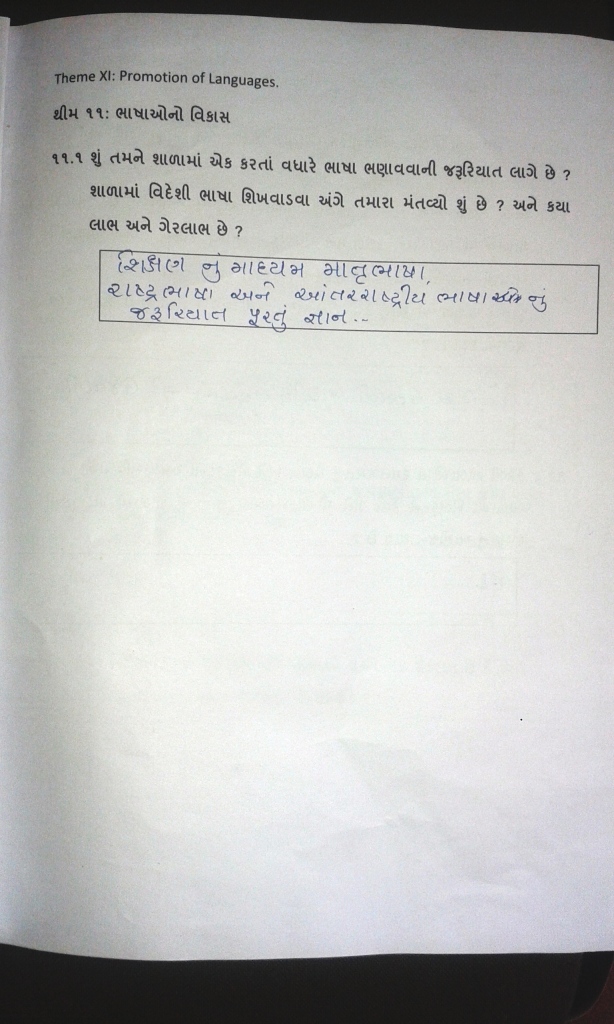 Theme XI: Promotion of Languages.
થીમ ૧૧: ભાષાઓનો વિકાસ
૧૧.૧ શું તમને શાળામાં એક કરતાં વધારે ભાષા ભણાવવાની જરૂરિયાત લાગે છે ?
શાળામાં વિદેશી ભાષા શિખવાડવા અંગે તમારા મંતવ્યો શું છે ? અને કયા
લાભ અને ગેરલાભ છે ?
શિક્ષણ નું માધ્યમ માતૃભાષા,
રાષ્ટ્રભાષા અને આંતરરાષ્ટ્રીય ભાષા નું
જરૂરિયાત પૂરતું જ્ઞાન...